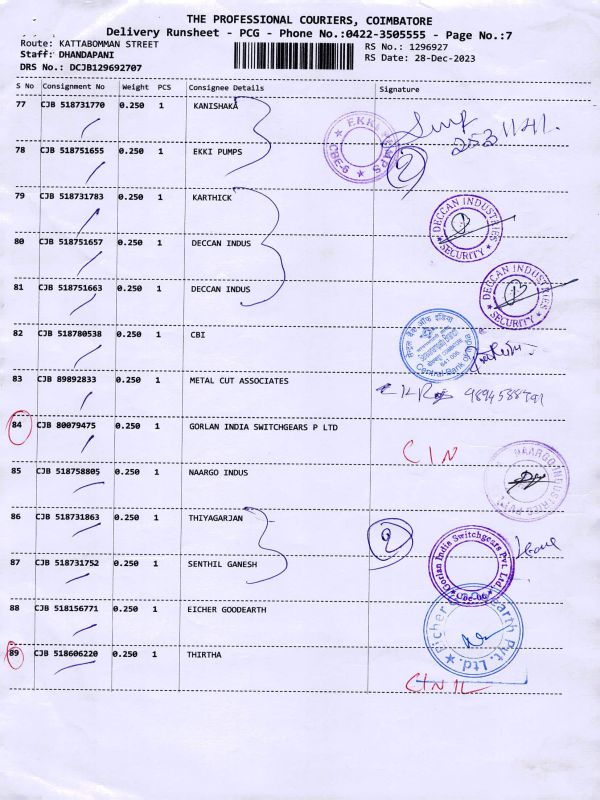 THE PROFESSIONAL COURIERS, COIMBATORE
Delivery Runsheet - PCG - Phone No.:0422-3505555 - Page No.:7
Route: KATTABOMMAN STREET RS No.: 1296927
Staff: DHANDAPANI RS Date: 28-Dec-2023
DRS No.: DCJB129692707
S No Consignment No Weight PCS Consignee Details Signature
77 CJB 518731770 0.250 1 KANISHAKA
EKKI PUMPS CBE-6
2531141.
78 CJB 518751655 0.250 1 EKKI PUMPS 2
79 CJB 518731783 0.250 1 KARTHICK
DECCAN INDUSTRIES SECURITY
80 CJB 518751657 0.250 1 DECCAN INDUS
81 CJB 518751663 0.250 1 DECCAN INDUS
DECCAN INDUSTRIES SECURITY
82 CJB 518780538 0.250 1 CBI
सेन्ट्रल बैंक ऑफ इंडिया Central Bank of India
83 CJB 89892833 0.250 1 METAL CUT ASSOCIATES
84 CJB 80079475 0.250 1 GORLAN INDIA SWITCHGEARS P LTD
CIN
85 CJB 518758805 0.250 1 NAARGO INDUS
NAARGO INDUSTRIES PVT LTD
86 CJB 518731863 0.250 1 THIYAGARJAN
2
Gorlan India Switchgears Pvt. Ltd. CBE-06
87 CJB 518731752 0.250 1 SENTHIL GANESH
88 CJB 518156771 0.250 1 EICHER GOODEARTH
Eicher Goodearth Pvt. Ltd.
89 CJB 518606220 0.250 1 THIRTHA